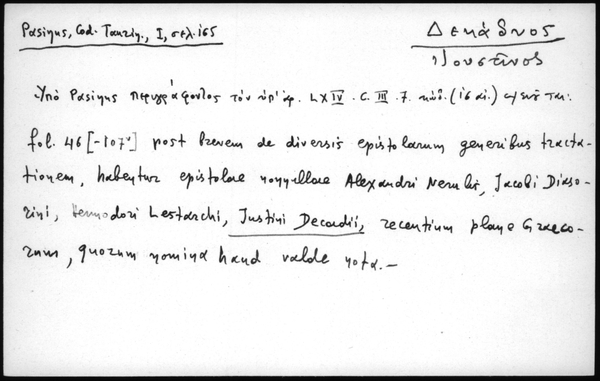 Pasinus, Cod. Taurin., I, σελ. 165
Δεκάδυος
Ἰουστῖνος
Ὑπὸ Pasinus περιγράφοντος τὸν ὑπ' ἀρ. LXIV . C. III . 7. κώδ. (16 αἰ.)
fol. 46 [-107ᵛ] post brevem de diversis epistolarum generibus tracta-
tionem, habentur epistolae nonnullae Alexandri Nerulii, Jacobi Diaso-
rini, Hermodori Lestarchi, Justini Decadii, recentium plane Graeco-
rum, quorum nomina haud valde nota.—